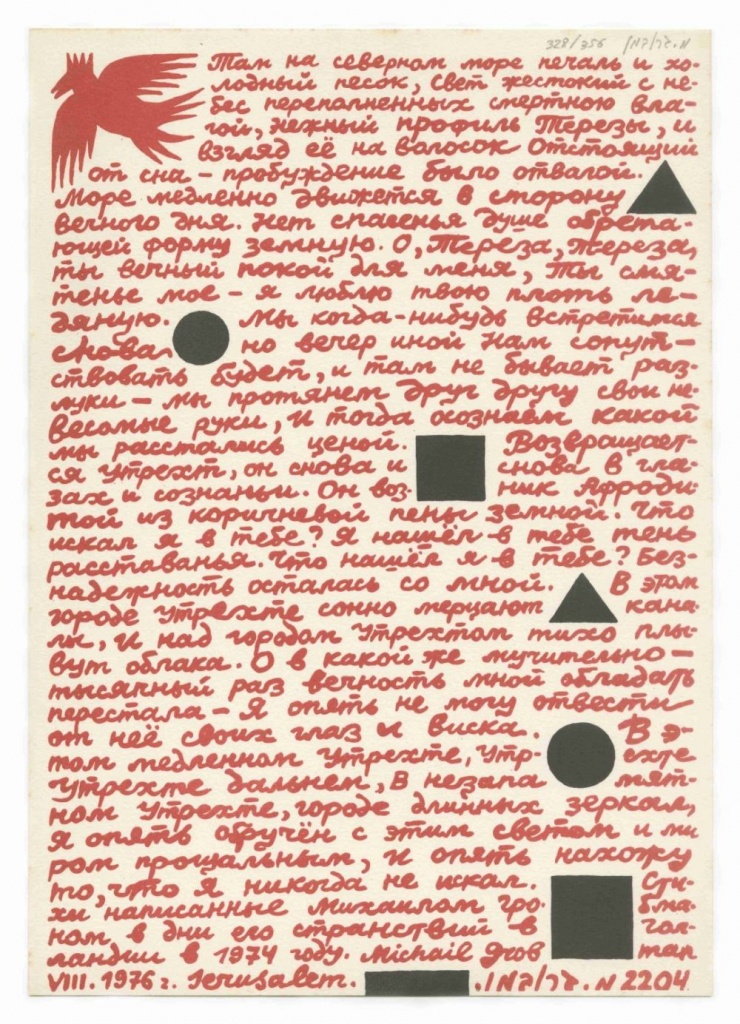 328/356 מ. גרובמן
Там на северном море печаль и хо-
лодный песок, свет жестокий с не-
бес переполненных смертною вла-
гой, нежный профиль Терезы, и
взгляд её на волосок отстоящий
от сна - пробуждение было отвагой.
Море медленно движется в сторону
вечного дня. Нет спасенья душе обрета-
ющей форму земную. О, Тереза, Тереза,
ты вечный покой для меня, ты смя-
тенье мое - я люблю твою плоть ле-
дяную. Мы когда-нибудь встретимся
снова, но вечер иной нам сопут-
ствовать будет, и там не бывает раз-
луки - мы протянем друг другу свои не-
весомые руки, и тогда осознаём какой
мы расстались ценой. Возвращает-
ся Утрехт, он снова и снова в гла-
зах и сознаньи. Он воз- ник Афроди-
той из коричневой пены земной. Что
искал я в тебе? Я нашёл в тебе тень
расставанья. Что нашёл я в тебе? Без-
надежность осталась со мной. В этом
городе Утрехте сонно мерцают кана-
лы, и над городом Утрехтом тихо плы-
вут облака. О в какой же мучительно-
тысячный раз вечность мной обладать
перестала - Я опять не могу отвести
от неё своих глаз и виска. В э-
том медленном Утрехте, Утр- ехте
Утрехте дальнем, в незапа мят-
ном Утрехте, городе длинных зеркал,
я опять обручён с этим светом и ми
ром прощальным, и опять нахожу
то, что я никогда не искал. Сти-
хи написанные Михаилом Гро- бма-
ном, в дни его странствий в гол-
ландии в 1974 году. Michail Grob man
VIII. 1976 г. Jerusalem. מ. גרובמן. 2204